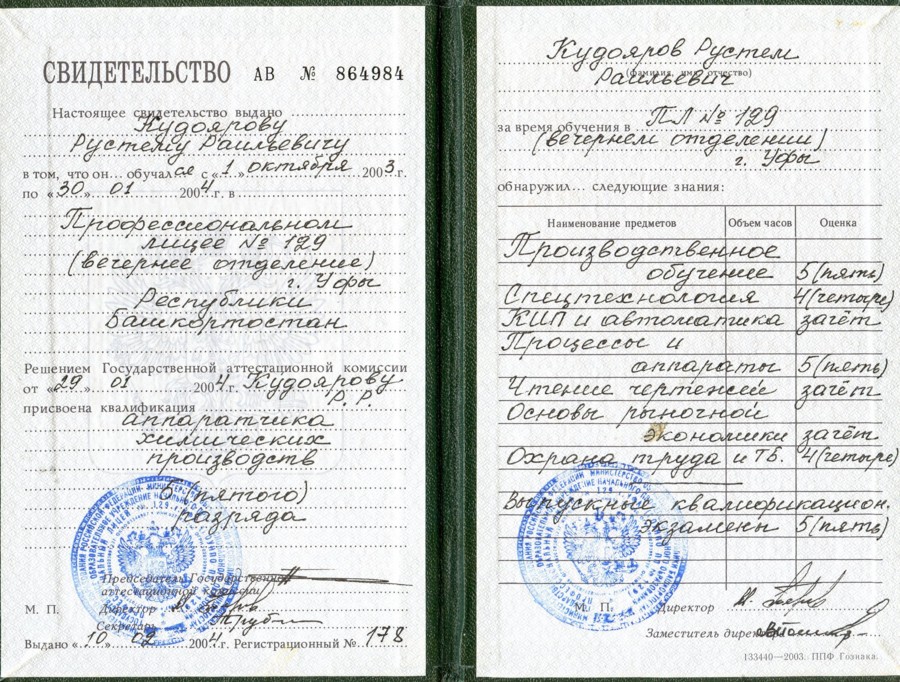 СВИДЕТЕЛЬСТВО АВ № 864984
Настоящее свидетельство выдано
Кудоярову
Рустему Раильевичу
в том, что он... обучался с «1» октября 2003.г.
по «30» 01 2004 г. в
Профессиональном
лицее № 129
(вечернее отделение)
г. Уфы
Республики
Башкортостан
Решением Государственной аттестационной комиссии
от «29» 01 2004 г. Кудоярову
присвоена квалификация Р.Р.
аппаратчика
химических
производств
5 (пятого)
разряда
Председатель Государственной
аттестационной комиссии
М. П. Директор
Секретарь
Выдано «10» 02 2004 г. Регистрационный № 178
Кудояров Рустем
Раильевич
(фамилия, имя, отчество)
за время обучения в ПЛ № 129
(вечернем отделении)
г. Уфы
обнаружил... следующие знания:
Наименование предметов Объем часов Оценка
Производственное
обучение 5 (пять)
Спецтехнология 4 (четыре)
КИП и автоматика зачёт
Процессы и
аппараты 5 (пять)
Чтение чертежей зачёт
Основы рыночной
экономики зачёт
Охрана труда и ТБ. 4 (четыре)
Выпускные квалификацион.
экзамены 5 (пять)
М. П. Директор
Заместитель директора
133440—2003. ППФ Гознака.